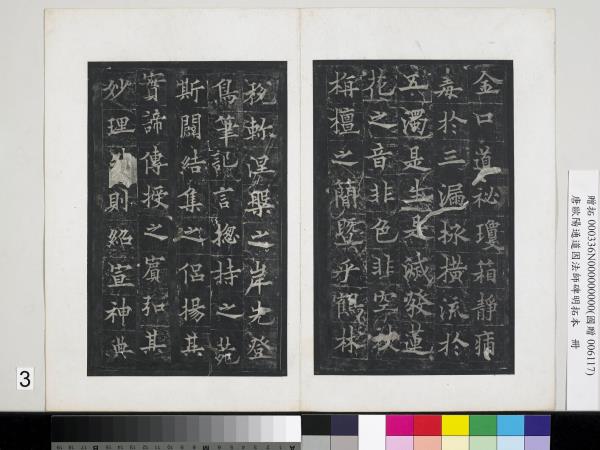 金口道祕瓊箱靜痾
毒於三漏拯橫流於
五濁是生是滅發蓮
花之音非色非空被
栴檀之蔭曁乎鶴林
稅軫涅槃之岸先登
鳥筆記言揔持之菀
斯闢結集之侶揚其
實諦傳授之賓弘其
妙理則紹宣神典
贈拓 000336N000000000(國贈 006117)
唐歐陽通道因法師碑明拓本 冊
3